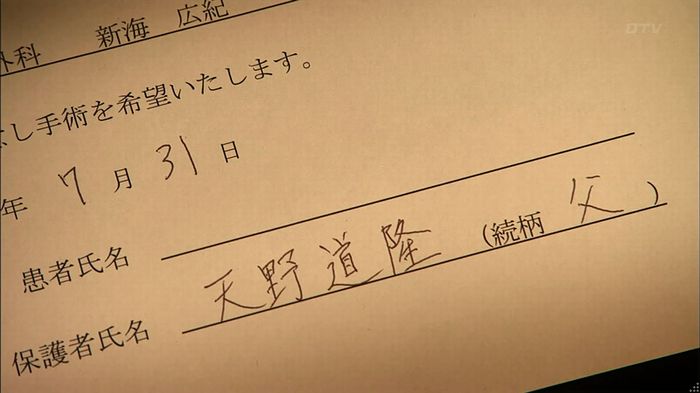 外科 新海 広紀
し手術を希望いたします。
年 7 月 31 日
患者氏名
保護者氏名 天野道隆 (続柄 父)
DTV